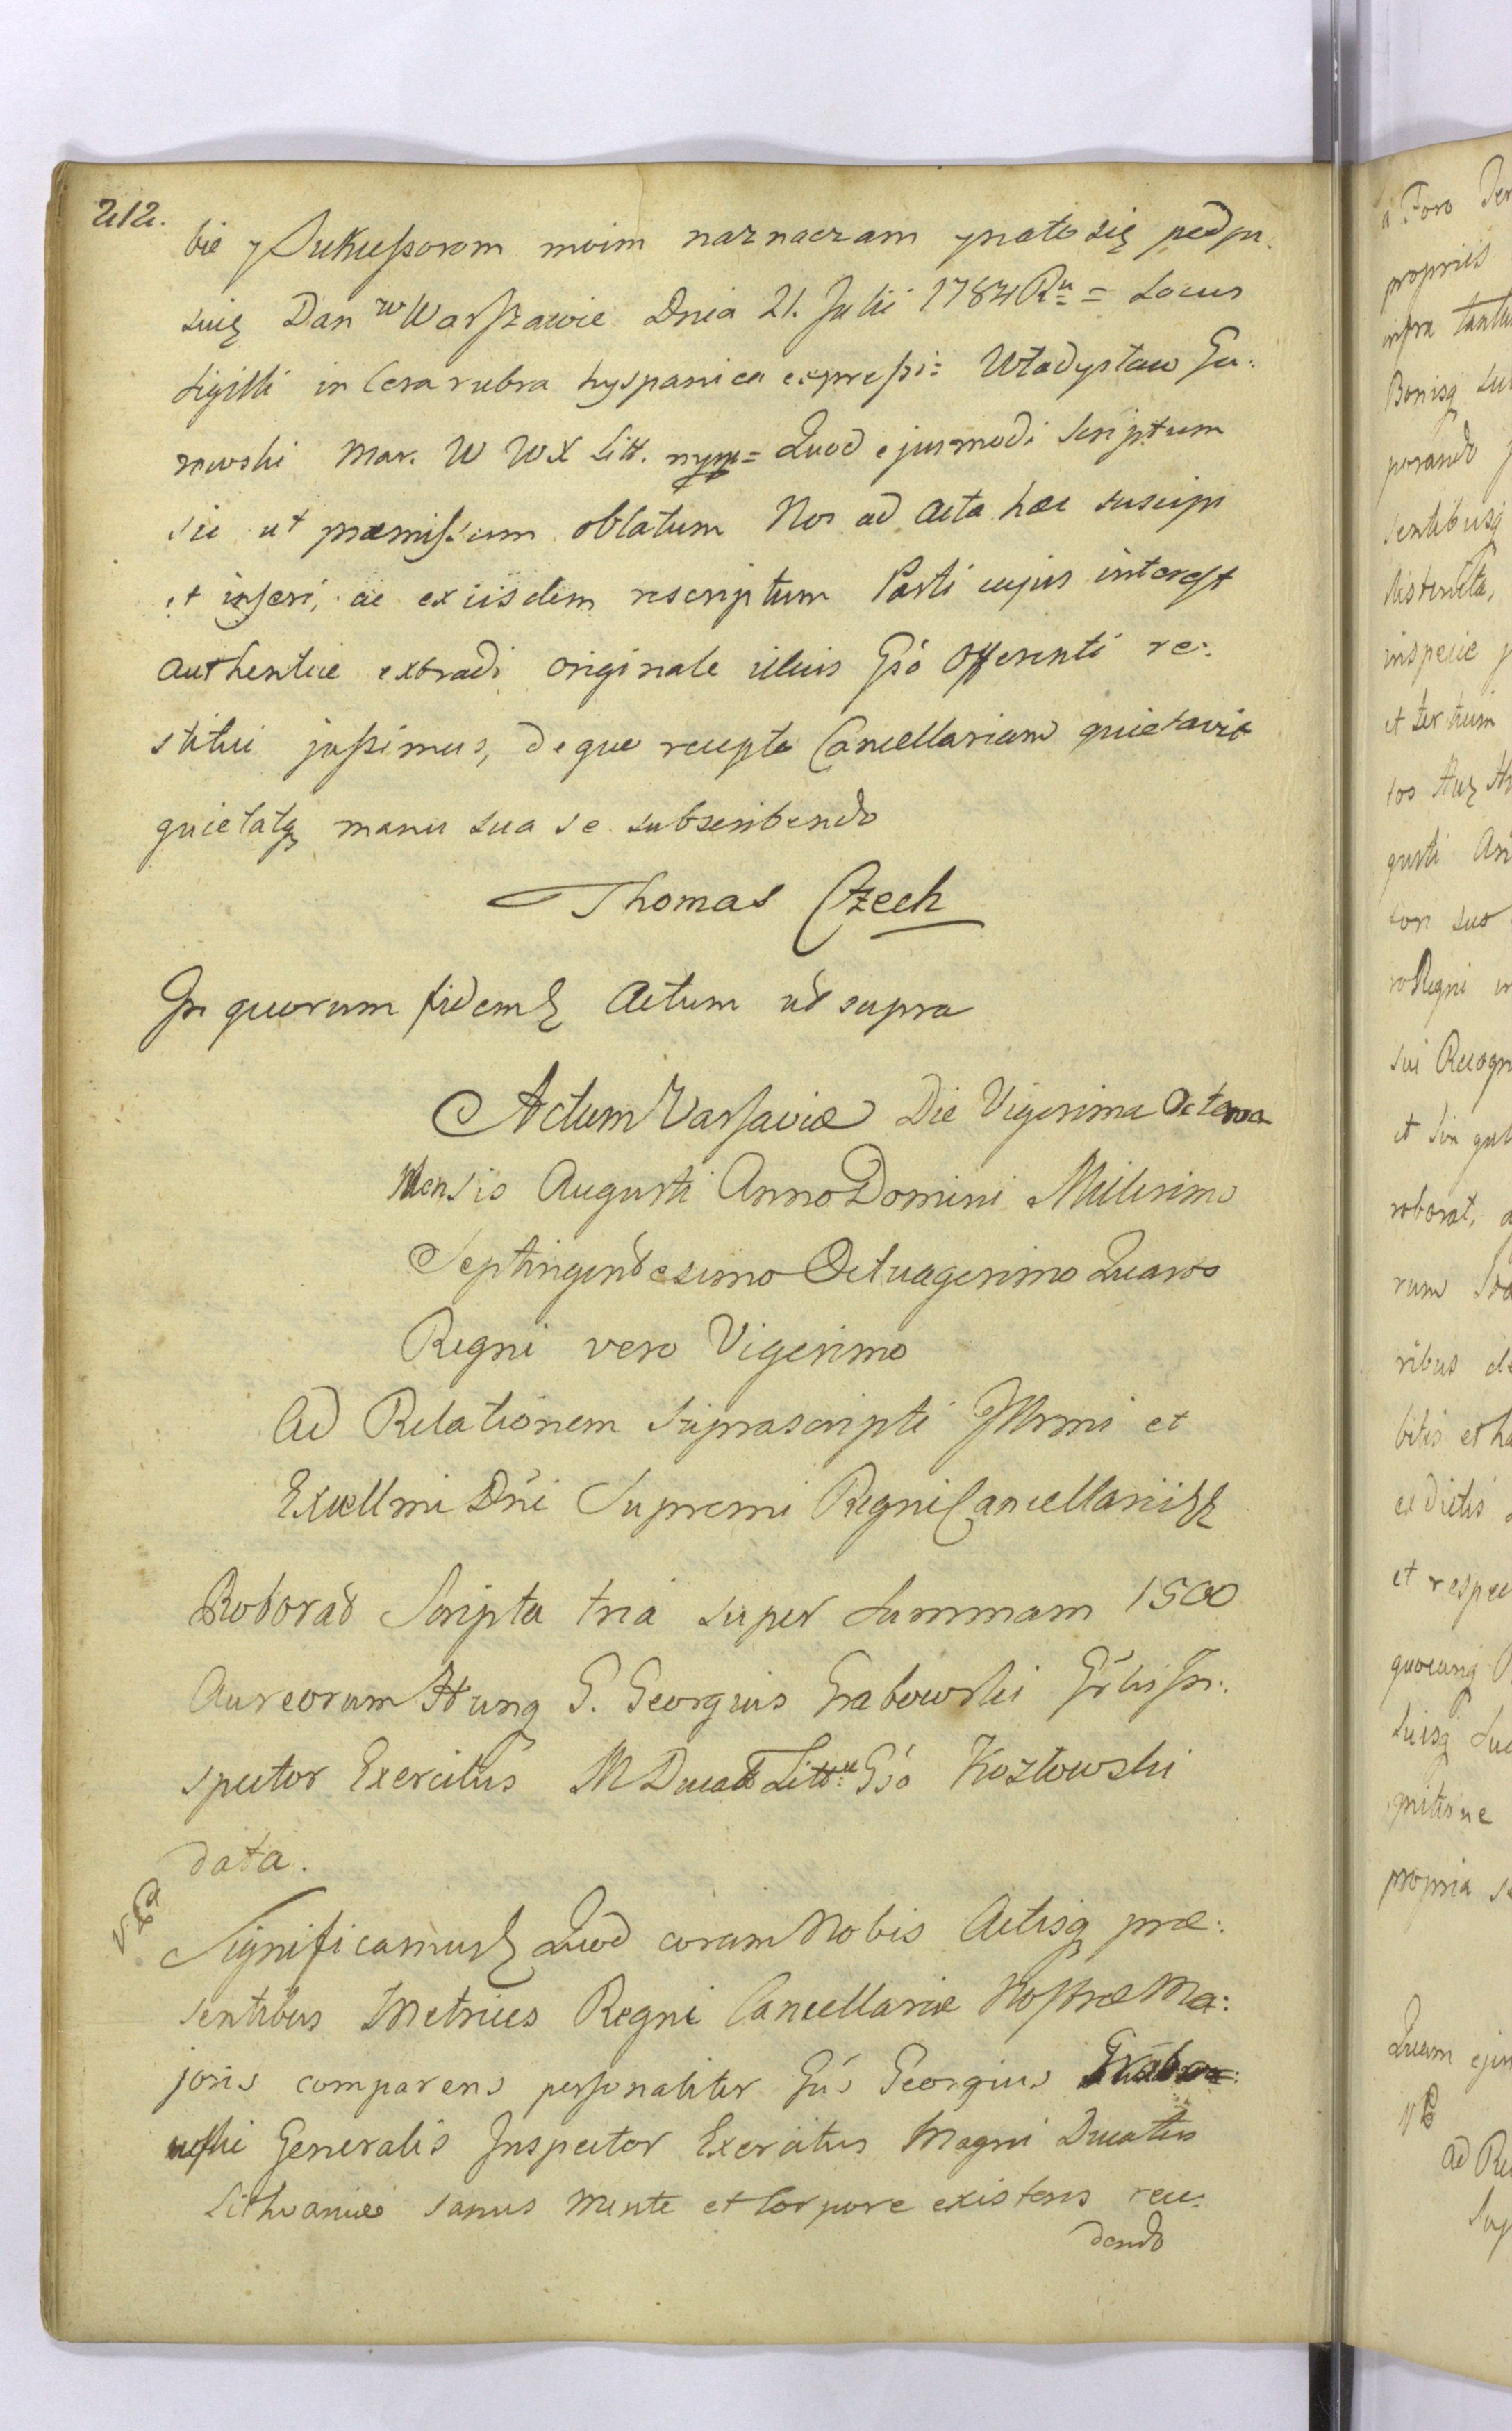 212.
bie y Sukcessorom moim naznaczam ynato się podpi:
suię Dan w Warszawie Dnia 21. Julii 1784 Ru = Locus
Sigilli in Cera rubra hyspanica expressi = Władysław Gu:
rowski Mar. W WX Litt. mpp = Quod ejusmodi Scriptum
sic ut præmissum oblatum Nos ad Acta hæc suscipi
et inseri, ac exiisdem rescriptum Parti cujus interest
authentice extradi originale illius Gso Offerenti re:
stitui jussimus, deque recepto Cancellariam quietavit
quietatq manu sua se subscribendo
Thomas Czech
In quorum fidem Actum ut supra
Actum Varsaviæ Die Vigesima Octava
Mensis Augusti Anno Domini Millesimo
Septingentesimo Octuagesimo Quarto
Regni vero Vigesimo
Ad Relationem Suprascripti Illrmi et
Excellmi Dni Supremi Regni Cancellarii
Roborat Scripta tria super Summam 1500
Aureorum Hung G. Georgius Grabowski Grlis In:
spector Exercitus M Ducat Littu Gso Kozłowski
data.
Significamus Quod coram Nobis Actisq præ:
sentibus Metrices Regni Cancellariæ Nostræ Ma:
joris comparens personaliter Gus Georgius Grabo:
wski Generalis Inspector Exercitus Magni Ducatus
Lithvaniæ sanus mente et Corpore existens rece:
dendo
a Foro
propriis
infra
Bonisq
parando
sentibusq
inspecie
et tertium
gusti
suo
Regni
sui Recogn
et
roborat,
rum
ribus
bitis et
edictis
et respec
quocunq
suisq
propria
Quam
Ad